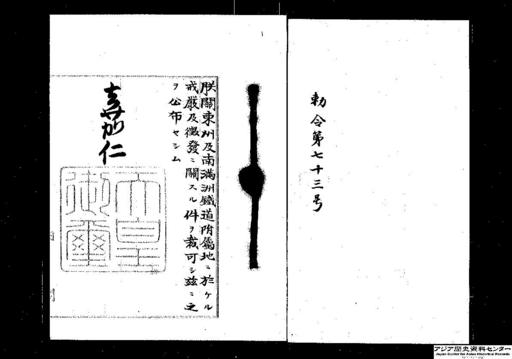 勅令第七十三号
朕關東州及南滿洲鐵道附屬地ニ於ケル
戒嚴及徵發ニ關スル件ヲ裁可シ茲ニ之
ヲ公布セシム
嘉仁
天皇御璽
アジア歴史資料センター
Japan Center for Asian Historical Records